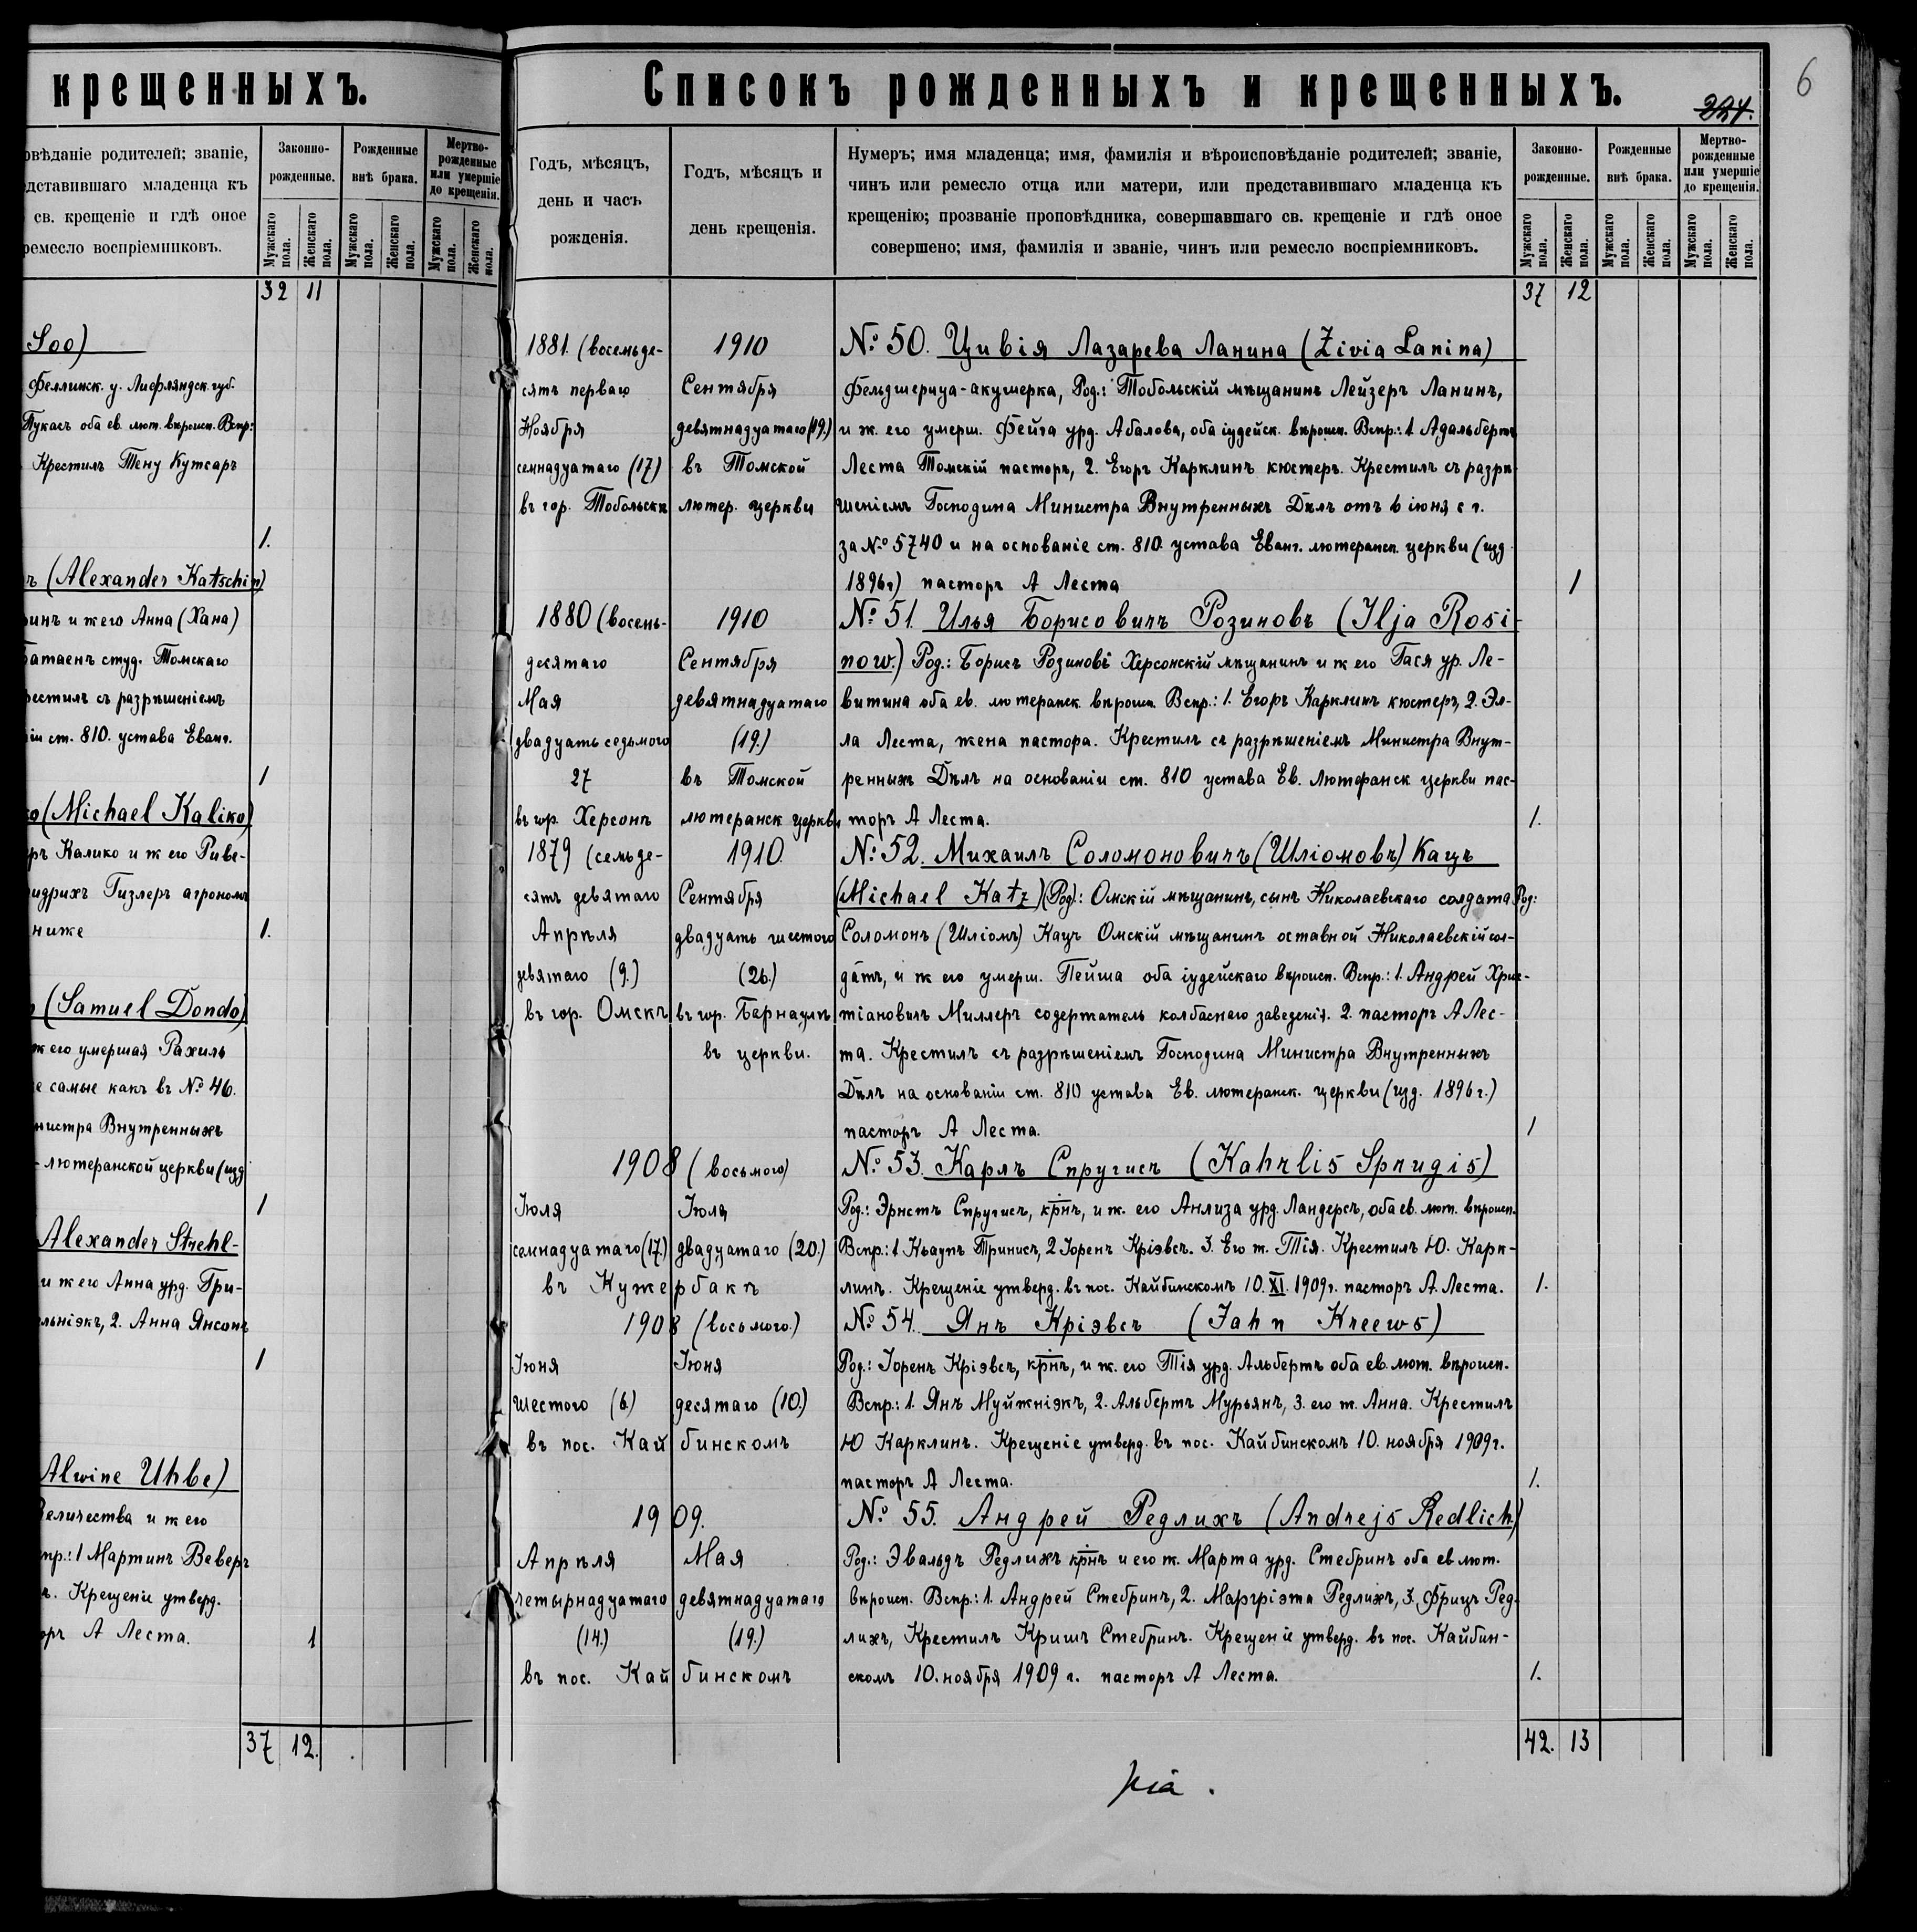 крещенныхъ.
овѣданіе родителей; званіе,
дставившаго младенца къ
св. крещеніе и гдѣ оное
ремесло воспріемниковъ.
Законно-
рожденные.
Рожденные
внѣ брака.
Мертво-
рожденные
или умершіе
до крещенія.
Мужскаго пола.
Женскаго пола.
Мужскаго пола.
Женскаго пола.
Мужскаго пола.
Женскаго пола.
32 11
Soo)
Феллинск. у. Лифляндск. губ.
Тукасъ оба ев. лют. вѣроисп. Вспр:
Крестилъ Тену Кутсаръ
1.
ъ (Alexander Katschin)
инъ и ж его Анна (Хана)
батаенъ студ. Томскаго
рестилъ съ разрѣшеніемъ
іи ст. 810. устава Еванг.
1
ко (Michael Kaliko)
ръ Калико и ж его Риве-
идрихъ Гизлеръ агрономъ
ниже
1.
о (Samuel Dondo)
ж его умершая Рахиль
е самые какъ въ № 46.
нистра Внутренныхъ
- лютеранской церкви (изд
1
Alexander Strehl-
и ж его Анна урд. Гри-
льніэкъ, 2. Анна Янсонъ
1
Alwine Uhbe)
Величества и ж его
пр.: 1 Мартинъ Веверъ
ъ. Крещеніе утверд.
оръ А Леста.
1
37 12.
Списокъ рожденныхъ и крещенныхъ.
224.
6
Годъ, мѣсяцъ,
день и часъ
рожденія.
Годъ, мѣсяцъ и
день крещенія.
Нумеръ; имя младенца; имя, фамилія и вѣроисповѣданіе родителей; званіе,
чинъ или ремесло отца или матери, или представившаго младенца къ
крещенію; прозваніе проповѣдника, совершавшаго св. крещеніе и гдѣ оное
совершено; имя, фамилія и званіе, чинъ или ремесло воспріемниковъ.
Законно-
рожденные.
Рожденные
внѣ брака.
Мертво-
рожденные
или умершіе
до крещенія.
Мужскаго пола.
Женскаго пола.
Мужскаго пола.
Женскаго пола.
Мужскаго пола.
Женскаго пола.
37 12
1881. (восемьде- 1910 № 50. Цивія Лазарева Ланина (Zivia Lanina)
сятъ перваго Сентября Фельдшерица-акушерка, Род.: Тобольскій мѣщанинъ Лейзеръ Ланинъ,
Ноября девятнадцатаго (19.) и ж. его умерш. Фейга урд. Абалова, оба іудейск. вѣроисп. Вспр.: 1. Адальбертъ
семнадцатаго (17) въ Томской Леста Томскій пасторъ, 2. Егоръ Карклинъ кюстеръ. Крестилъ съ разрѣ-
въ гор. Тобольскѣ лютер. церкви шеніемъ Господина Министра Внутренныхъ Дѣлъ отъ 6 іюня с г.
за № 5740 и на основаніе ст. 810. устава Еванг. лютеранск. церкви (изд.
1896г) пасторъ А Леста 1
1880 (восемь- 1910 № 51. Илья Борисовичъ Розиновъ (Ilja Rosi-
десятаго Сентября now.) Род.: Борисъ Розиновъ Херсонскій мѣщанинъ и ж его Гася ур. Ле-
Мая девятнадцатаго витина оба ев. лютеранск. вѣроисп. Вспр.: 1. Егоръ Карклинъ кюстеръ, 2. Эл-
двадцать седьмого (19.) ла Леста, жена пастора. Крестилъ съ разрѣшеніемъ Министра Внут-
27 въ Томской ренныхъ Дѣлъ на основаніи ст. 810 устава Ев. Лютеранск церкви пас-
въ гор. Херсонѣ лютеранск церкви торъ А Леста. 1.
1879 (семьде- 1910. № 52. Михаилъ Соломоновичъ (Шліомовъ) Кацъ
сятъ девятаго Сентября (Michael Katz) (Род): Омскій мѣщанинъ, сынъ Николаевскаго солдата Род:
Апрѣля двадцать шестого Соломонъ (Шліомъ) Кацъ Омскій мѣщанинъ оставной Николаевскій сол-
девятаго (9.) (26.) датъ, и ж его умерш. Пейша оба іудейскаго вѣроисп. Вспр.: 1. Андрей Хрис-
въ гор. Омскѣ въ гор. Барнаулѣ тіановичъ Миллеръ содержатель колбаснаго заведенія. 2. пасторъ А Лес-
въ церкви. та. Крестилъ съ разрѣшеніемъ Господина Министра Внутренныхъ
Дѣлъ на основаніи ст. 810 устава Ев. лютеранск. церкви (изд. 1896 г.)
пасторъ А Леста. 1
1908 (восьмого) № 53. Карлъ Спругисъ (Kahrlis Sprugis)
Іюля Іюля Род.: Эрнстъ Спругисъ, крнъ, и ж. его Анлиза урд. Ландерсъ, оба ев. лют. вѣроисп.
семнадцатаго (17.) двадцатаго (20.) Вспр.: 1 Кьаупъ Тринисъ, 2 Іоренъ Кріэвсъ. 3. Его ж. Тія. Крестилъ Ю. Карк-
въ Кужербакѣ линъ. Крещеніе утверд. въ пос. Кайбинскомъ 10. XI. 1909 г. пасторъ А. Леста. 1.
1908 (восьмого.) № 54. Янъ Кріэвсъ (Jahn Kreews)
Іюня Іюня Род.: Іоренъ Кріэвсъ, крнъ, и ж. его Тія урд. Альбертъ оба ев. лют. вѣроисп.
шестого (6.) десятаго (10.) Вспр.: 1. Янъ Муйжніэкъ, 2. Альбертъ Мурьянъ, 3. его ж. Анна. Крестилъ
въ пос. Кайбинскомъ Ю Карклинъ. Крещеніе утверд. въ пос. Кайбинскомъ 10. ноября 1909 г.
пасторъ А Леста. 1.
1909. № 55. Андрей Редлихъ (Andrejs Redlich)
Апрѣля Мая Род.: Эвальдъ Редлихъ крнъ и его ж. Марта урд. Стебринъ оба ев лют.
четырнадцатаго девятнадцатаго вѣроисп. Вспр.: 1. Андрей Стебринъ, 2. Маргріэта Редлихъ, 3. Фрицъ Ред-
(14.) (19.) лихъ, Крестилъ Кришъ Стебринъ. Крещеніе утверд. въ пос. Кайбин-
въ пос. Кайбинскомъ скомъ 10. ноября 1909 г. пасторъ А Леста. 1.
42. 13